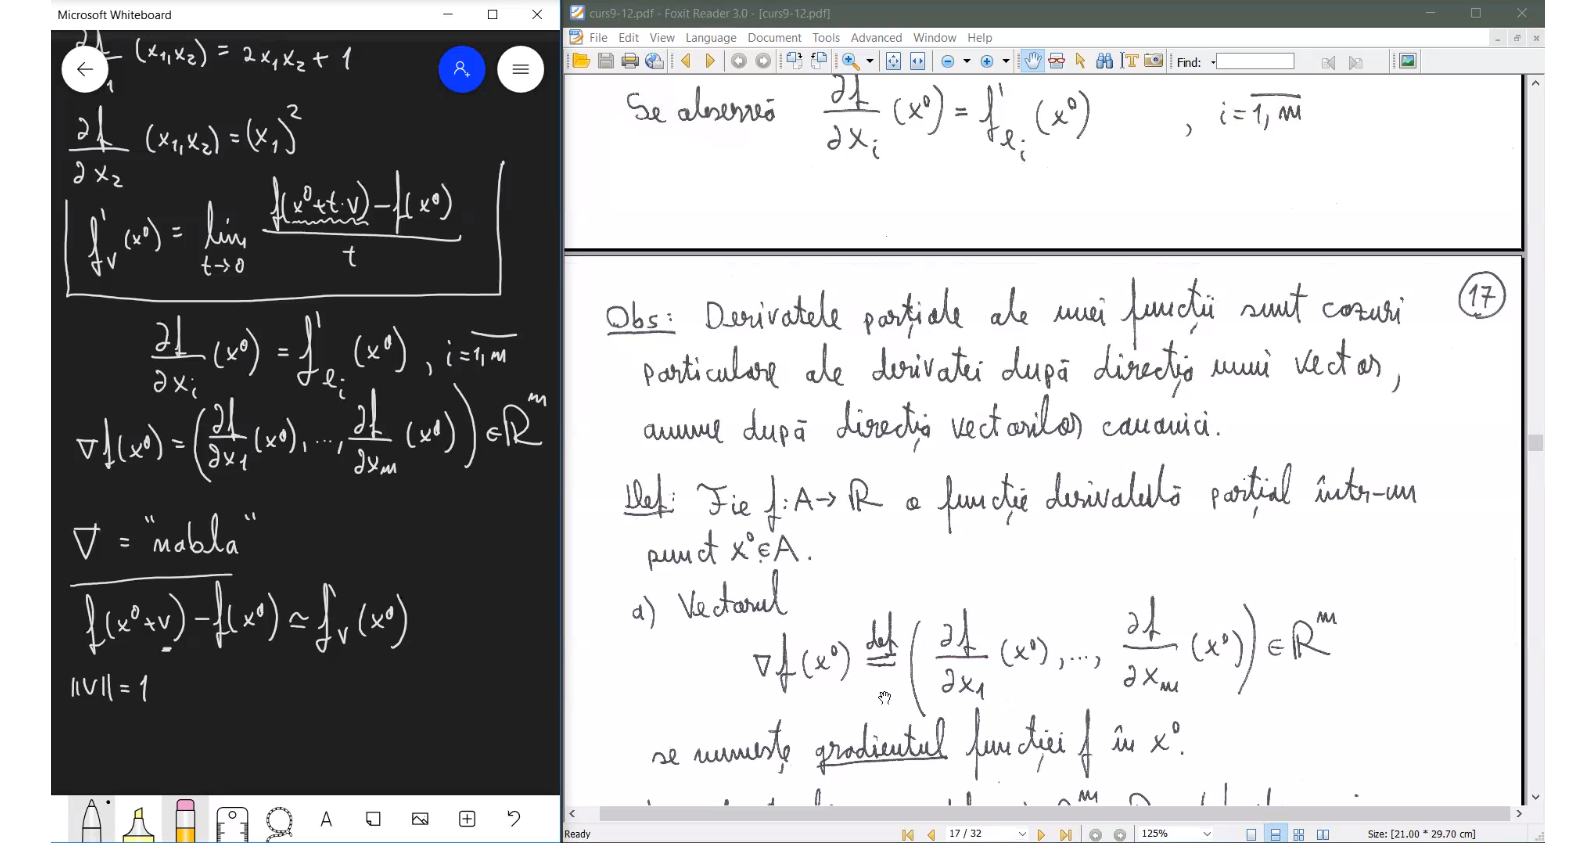 Microsoft Whiteboard
∂f/∂x₁ (x₁,x₂) = 2x₁x₂ + 1
∂f/∂x₂ (x₁,x₂) = (x₁)²
f'ᵥ(x⁰) = lim t→0 (f(x⁰+t·v) − f(x⁰))/t
∂f/∂xᵢ (x⁰) = f'ₑᵢ (x⁰), i=1,m
∇f(x⁰) = (∂f/∂x₁ (x⁰), ..., ∂f/∂xₘ (x⁰)) ∈ ℝᵐ
∇ = "nabla"
f(x⁰+v) − f(x⁰) ≃ f'ᵥ(x⁰)
||v|| = 1
curs9-12.pdf - Foxit Reader 3.0 - [curs9-12.pdf]
File Edit View Language Document Tools Advanced Window Help
Find:
Se observă ∂f/∂xᵢ (x⁰) = f'ₑᵢ (x⁰), i=1,m
17
Obs: Derivatele parțiale ale unei funcții sunt cazuri
particulare ale derivatei după direcția unui vector,
anume după direcția vectorilor canonici.
Def: Fie f: A→ℝ o funcție derivabilă parțial într-un
punct x⁰∈A.
a) Vectorul
∇f(x⁰) def= (∂f/∂x₁ (x⁰), ..., ∂f/∂xₘ (x⁰)) ∈ ℝᵐ
se numește gradientul funcției f în x⁰.
Ready
17 / 32
125%
Size: [21.00 * 29.70 cm]